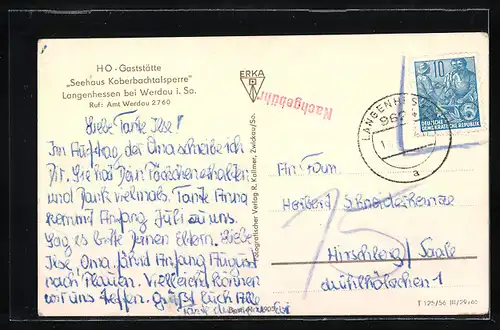 HO - Gaststätte
„Seehaus Koberbachtalsperre"
Langenhessen bei Werdau i. Sa.
Ruf: Amt Werdau 2760
ERKA
Nachgebühr
10
DEUTSCHE
DEMOKRATISCHE REPUBLIK
LANGENHESSEN
a
Liebe Tante Ilse!
Im Auftrag der Oma schreibe ich
Dir. Sie hat Dein Päckchen erhalten
und Dankt vielmals. Tante Anna
kommt Anfang Juli zu uns.
Sag es bitte Deinen Eltern. Liebe
Ilse, Oma fährt Anfang August
nach Plauen. Vielleicht können
wir uns treffen. Es grüßt Euch Alle
Fotografischer Verlag R. Kallmer, Zwickau/Sa.
An Frau
15
Hirschberg/Saale
Mühlhölzchen 1
T 125/56 III/29/60